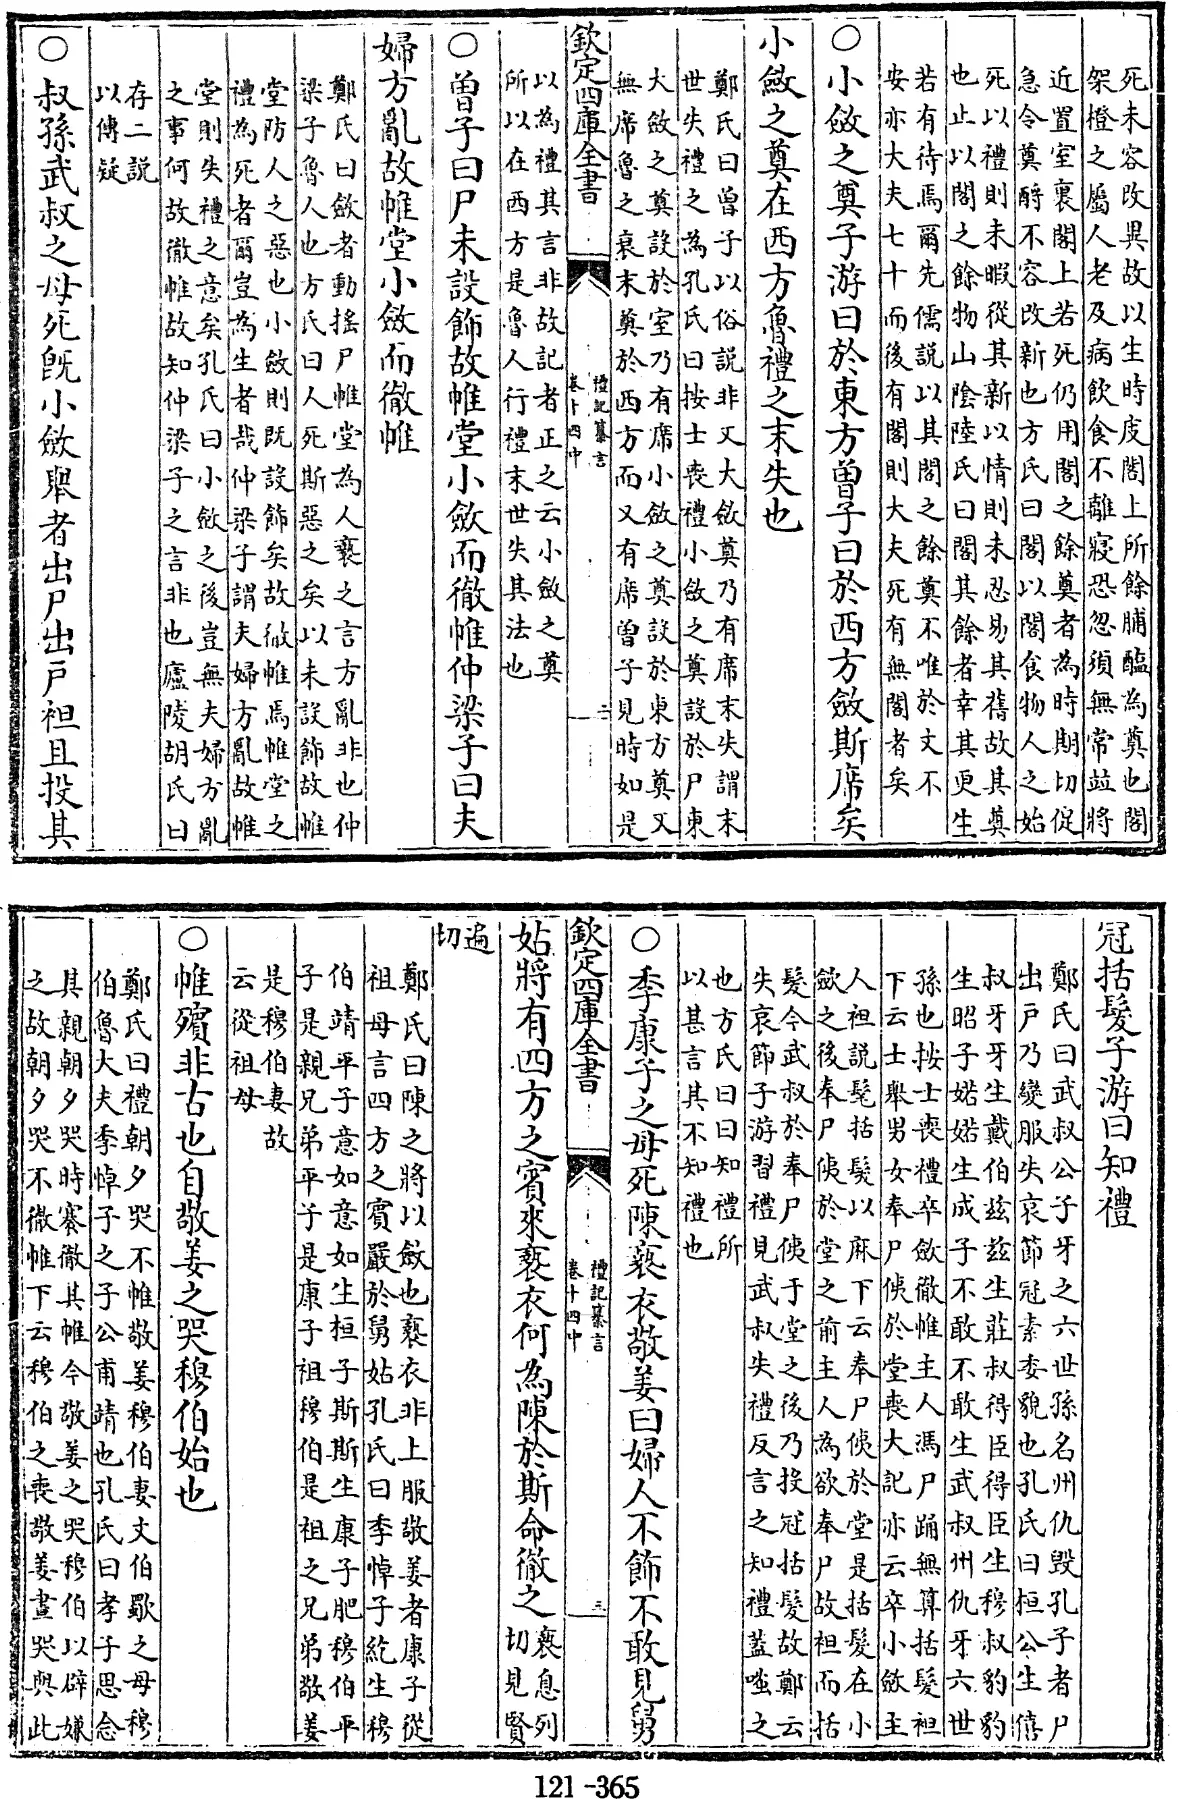 死未容改異故以生時庋閣上所餘脯醢為奠也閣
架橙之屬人老及病飲食不離寢恐忽須無常並將
近置室裏閣上若死仍用閣之餘奠者為時期切促
急令奠酹不容改新也方氏曰閣以閣食物人之始
死以禮則未暇從其新以情則未忍易其舊故其奠
也止以閣之餘物山陰陸氏曰閣其餘者幸其更生
若有待焉爾先儒說以其閣之餘奠不唯於文不
安亦大夫七十而後有閣則大夫死有無閣者矣
○小斂之奠子游曰於東方曾子曰於西方斂斯席矣
小斂之奠在西方魯禮之末失也
鄭氏曰曾子以俗說非又大斂奠乃有席末失謂末
世失禮之為孔氏曰按士喪禮小斂之奠設於尸東
大斂之奠設於室乃有席小斂之奠設於東方奠又
無席魯之衰末奠於西方而又有席曾子見時如是
欽定四庫全書
禮記纂言
卷十四中
二
以為禮其言非故記者正之云小斂之奠
所以在西方是魯人行禮末世失其法也
○曾子曰尸未設飾故帷堂小斂而徹帷仲梁子曰夫
婦方亂故帷堂小斂而徹帷
鄭氏曰斂者動搖尸帷堂為人褻之言方亂非也仲
梁子魯人也方氏曰人死斯惡之矣以未設飾故帷
堂防人之惡也小斂則既設飾矣故徹帷焉帷堂之
禮為死者爾豈為生者哉仲梁子謂夫婦方亂故帷
堂則失禮之意矣孔氏曰小斂之後豈無夫婦方亂
之事何故徹帷故知仲梁子之言非也廬陵胡氏曰
存二說
以傳疑
○叔孫武叔之母死旣小斂舉者出尸出戶袒且投其
冠括髮子游曰知禮
鄭氏曰武叔公子牙之六世孫名州仇毀孔子者尸
出戶乃變服失哀節冠素委貌也孔氏曰桓公生僖
叔牙牙生戴伯茲茲生莊叔得臣得臣生穆叔豹豹
生昭子婼婼生成子不敢不敢生武叔州仇牙六世
孫也按士喪禮卒斂徹帷主人馮尸踊無算括髮袒
下云士舉男女奉尸侇於堂喪大記亦云卒小斂主
人袒說髦括髮以麻下云奉尸侇於堂是括髮在小
斂之後奉尸侇於堂之前主人為欲奉尸故袒而括
髮今武叔於奉尸侇于堂之後乃投冠括髮故鄭云
失哀節子游習禮見武叔失禮反言之知禮蓋嗤之
也方氏曰曰知禮所
以甚言其不知禮也
○季康子之母死陳褻衣敬姜曰婦人不飾不敢見舅
欽定四庫全書
禮記纂言
卷十四中
三
姑將有四方之賓來褻衣何為陳於斯命徹之褻息列
切見賢
遍
切
鄭氏曰陳之將以斂也褻衣非上服敬姜者康子從
祖母言四方之賓嚴於舅姑孔氏曰季悼子紇生穆
伯靖平子意如意如生桓子斯斯生康子肥穆伯平
子是親兄弟平子是康子祖穆伯是祖之兄弟敬姜
是穆伯妻故
云從祖母
○帷殯非古也自敬姜之哭穆伯始也
鄭氏曰禮朝夕哭不帷敬姜穆伯妻文伯歜之母穆
伯魯大夫季悼子之子公甫靖也孔氏曰孝子思念
其親朝夕哭時褰徹其帷今敬姜之哭穆伯以辟嫌
之故朝夕哭不徹帷下云穆伯之喪敬姜晝哭與此
121-365